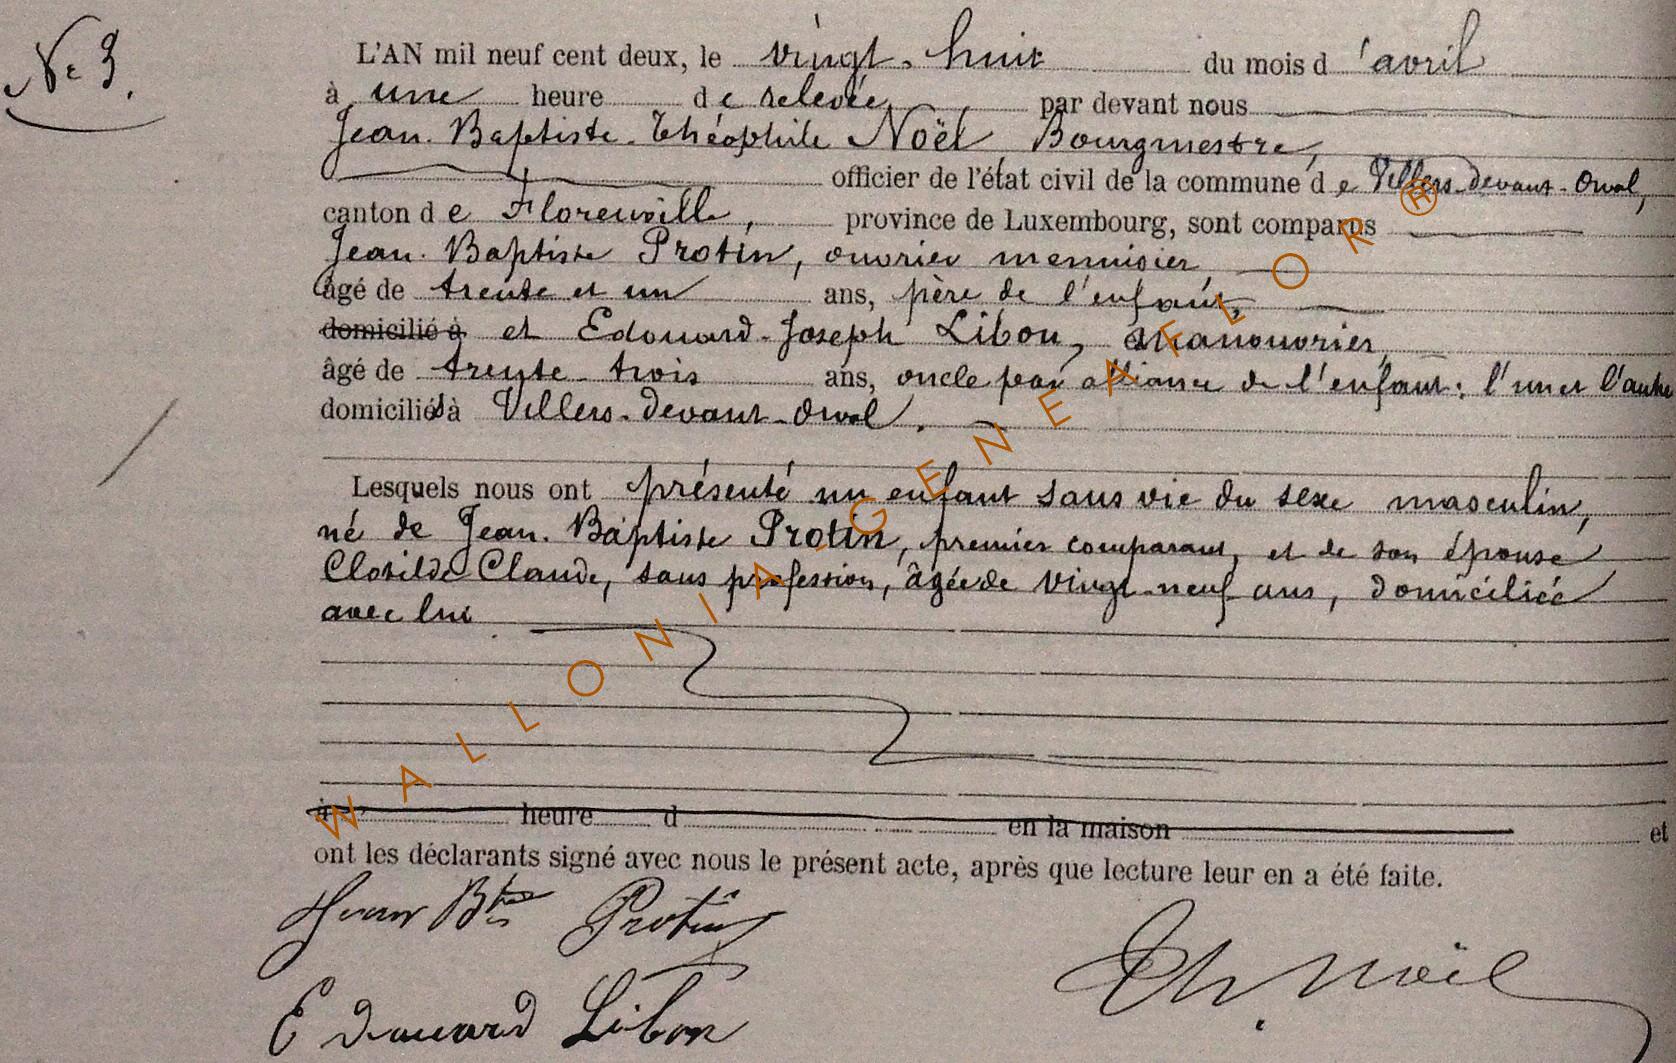 No 3.
L'AN mil neuf cent deux, le vingt-huit du mois d'avril
à une heure de relevée par devant nous
Jean-Baptiste-Théophile Noël Bourgmestre,
officier de l'état civil de la commune de Villers-devant-Orval,
canton de Florenville, province de Luxembourg, sont comparus
Jean-Baptiste Protin, ouvrier menuisier,
âgé de trente et un ans, père de l'enfant,
domicilié à et Edouard-Joseph Libon, manouvrier,
âgé de trente-trois ans, oncle par alliance de l'enfant; l'un et l'autre
domiciliés à Villers-devant-Orval.
Lesquels nous ont présenté un enfant sans vie du sexe masculin,
né de Jean-Baptiste Protin, premier comparant, et de son épouse
Clotilde Claude, sans profession, âgée de vingt-neuf ans, domiciliée
avec lui
à heure d en la maison et
ont les déclarants signé avec nous le présent acte, après que lecture leur en a été faite.
Jean Bte Protin
Th. Noël
Edouard Libon
WALLONIA-GENEAFLOR®